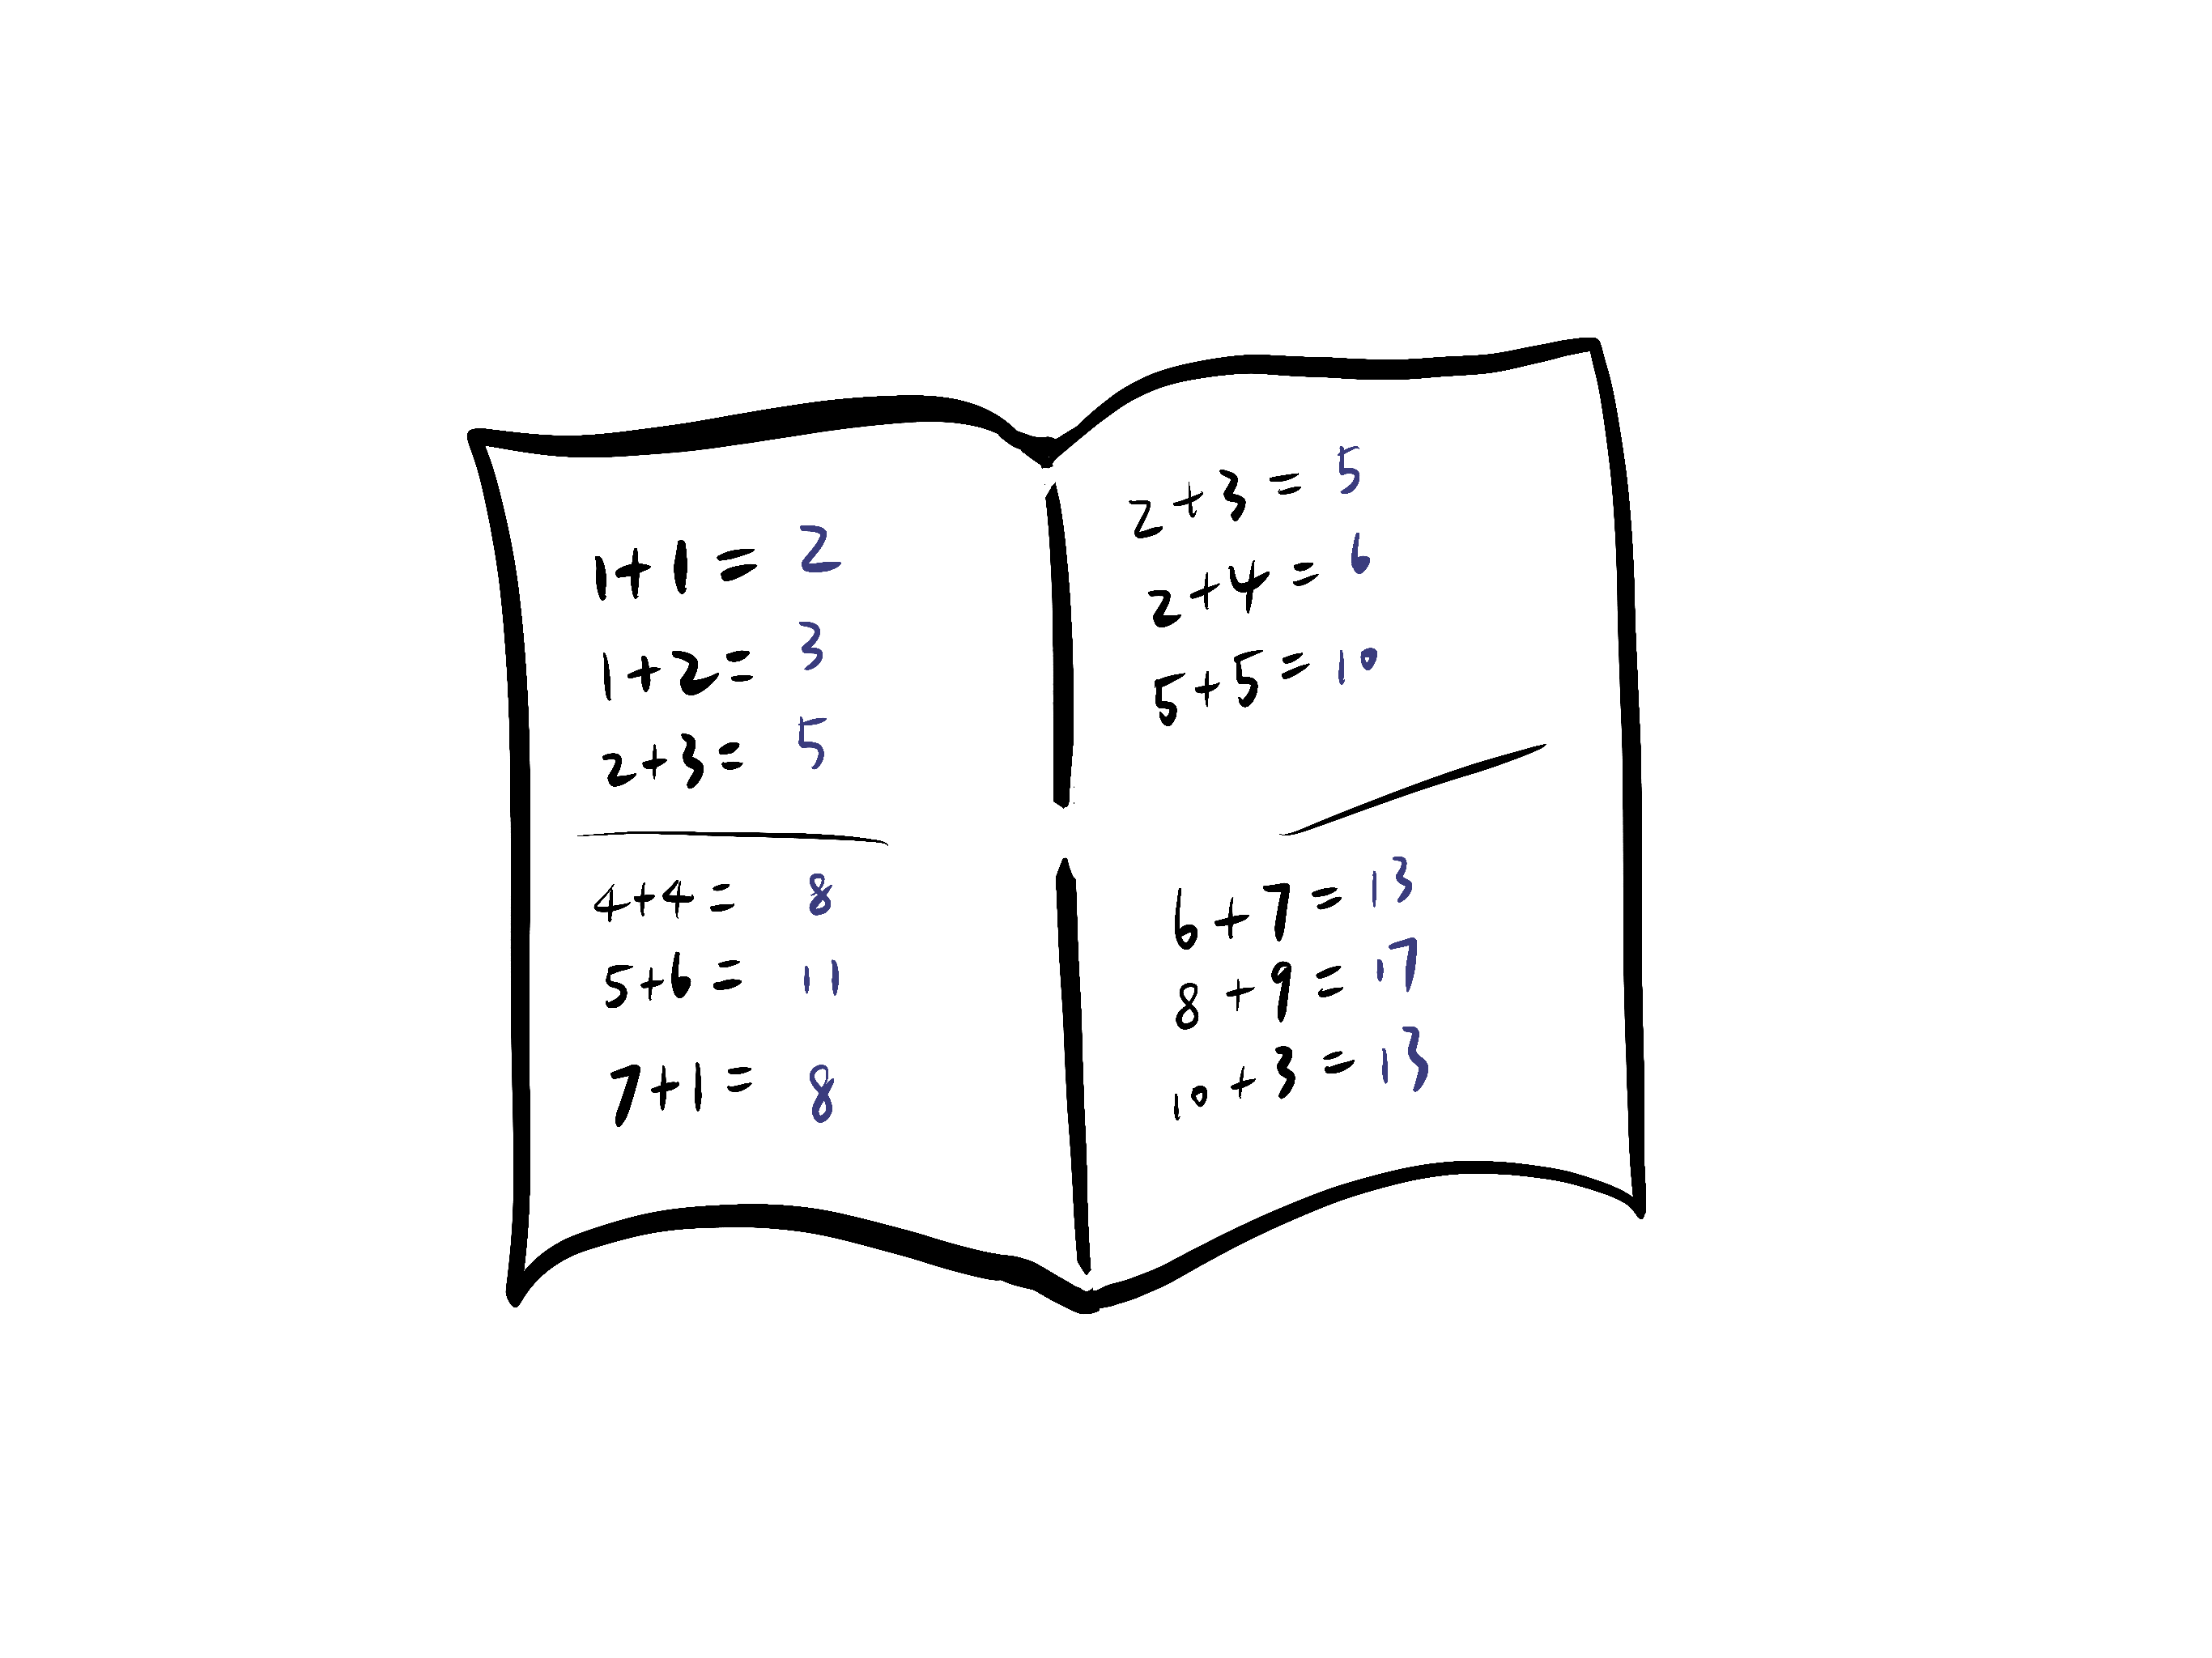 1+1=2
1+2=3
2+3=5
4+4=8
5+6=11
7+1=8
2+3=5
2+4=6
5+5=10
6+7=13
8+9=17
10+3=13